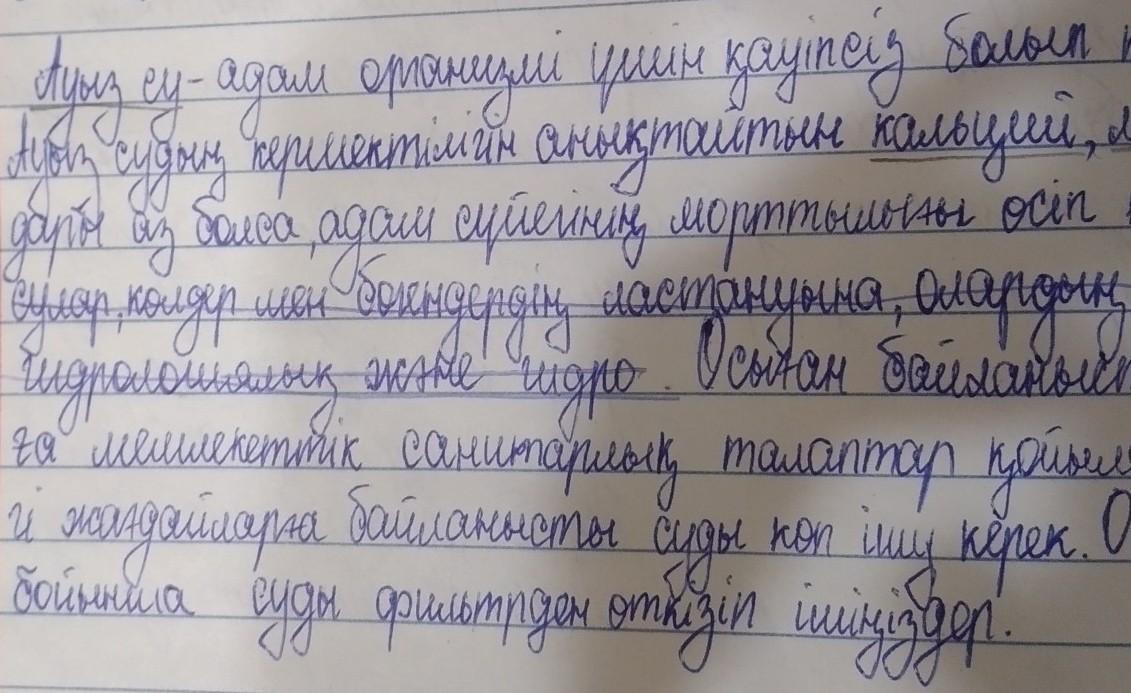 Ауыз су - адам организмі үшін қауіпсіз болып
Ауыз судың кермектілігін анықтайтын кальций,
дары аз болса, адам сүйегінің морттылығы өсіп
сулар, көлдер мен бөгендердің ластануына, олардың
гидрологиялық және гидро. Осыған байланыст
ға мемлекеттік санитарлық талаптар қойыл
гі жағдайларға байланысты суды көп ішу керек. О
бойынша суды фильтрден өткізіп ішіңіздер.